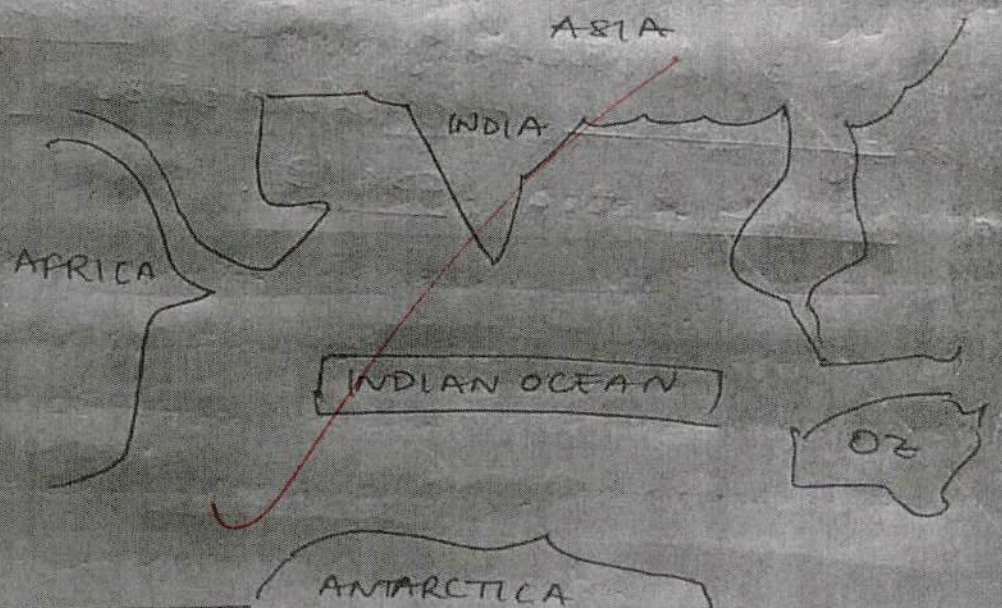 ASIA
INDIA
AFRICA
INDIAN OCEAN
OZ
ANTARCTICA